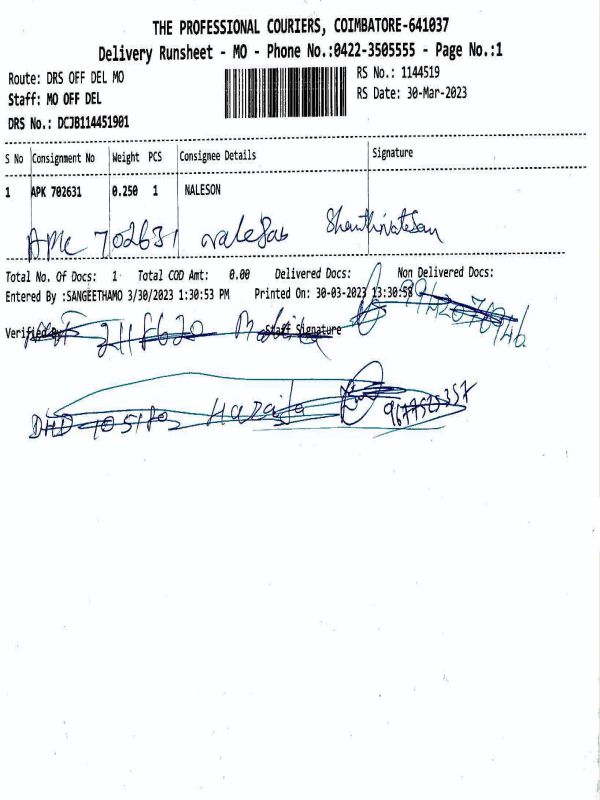 THE PROFESSIONAL COURIERS, COIMBATORE-641037
Delivery Runsheet - MO - Phone No.:0422-3505555 - Page No.:1
Route: DRS OFF DEL MO
RS No.: 1144519
Staff: MO OFF DEL
RS Date: 30-Mar-2023
DRS No.: DCJB114451901
S No Consignment No Weight PCS Consignee Details Signature
1 APK 702631 0.250 1 NALESON
APK 702631 naleson Shanthinatesan
Total No. Of Docs: 1 Total COD Amt: 0.00 Delivered Docs: Non Delivered Docs:
Entered By :SANGEETHAMO 3/30/2023 1:30:53 PM Printed On: 30-03-2023 13:30:58
Verified By Staff Signature
9677525357